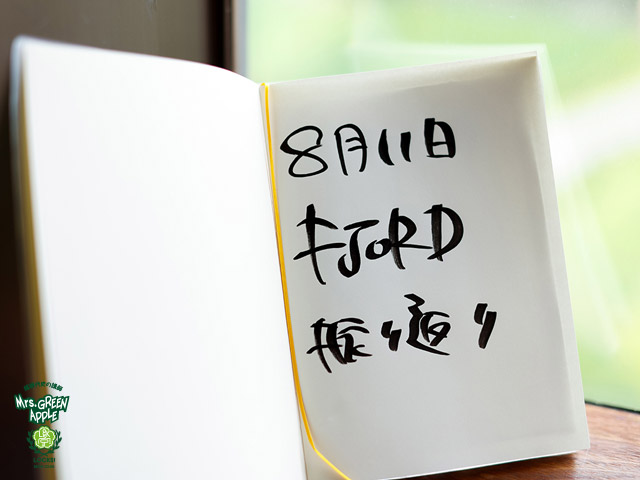 8月11日
FJORD
振り返り
Mrs. GREEN
APPLE